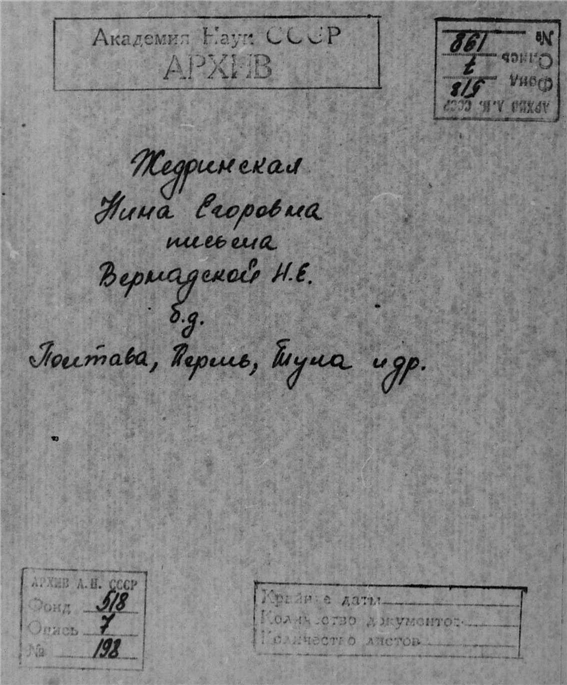 Академия Наук СССР
АРХИВ
АРХИВ А.Н. СССР
Фонд 518
Опись 7
№ 198
Жедринская
Нина Егоровна
письма
Вернадской Н.Е.
б.д.
Полтава, Пермь, Тула и др.
АРХИВ А.Н. СССР
Фонд 518
Опись 7
№ 198
Крайние даты
Количество документов
Количество листов